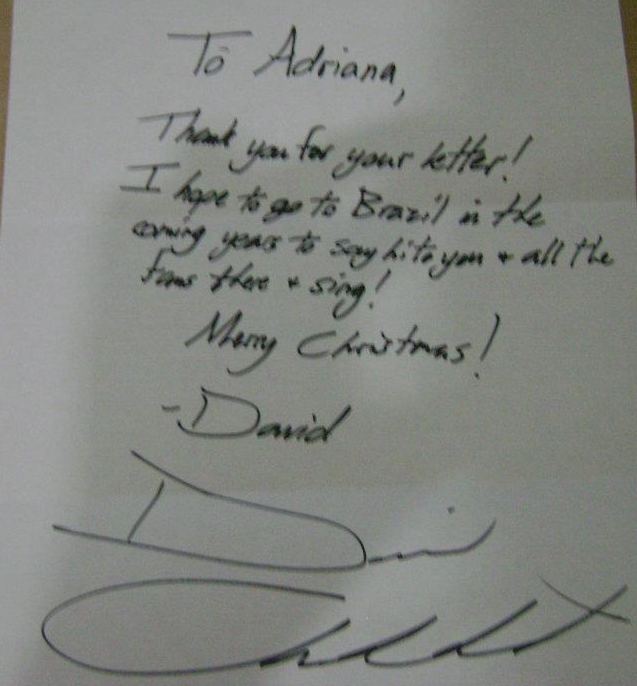 To Adriana,
Thank you for your letter!
I hope to go to Brazil in the
coming years to say hi to you + all the
fans there + sing!
Merry Christmas!
-David